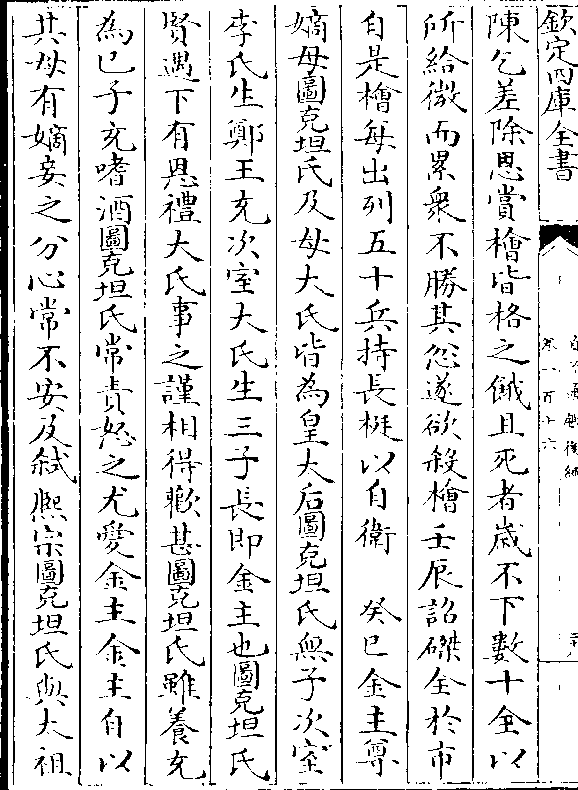 欽定四庫全書
陳乞差除恩賞檜皆格之餓且死者歲不下數十全以
所給微而累衆不勝其忿遂欲殺檜壬辰詔磔全於市
自是檜每出列五十兵持長梃以自衛　癸巳金主尊
嫡母圖克坦氏及母大氏皆為皇太后圖克坦氏無子次室
李氏生鄭王充次室大氏生三子長即金主也圖克坦氏
賢遇下有恩禮大氏事之謹相得歡甚圖克坦氏雖養充
為已子充嗜酒圖克坦氏常責怒之尤愛金主金主自以
其母有嫡妾之分心常不安及弑熈宗圖克坦氏與太祖